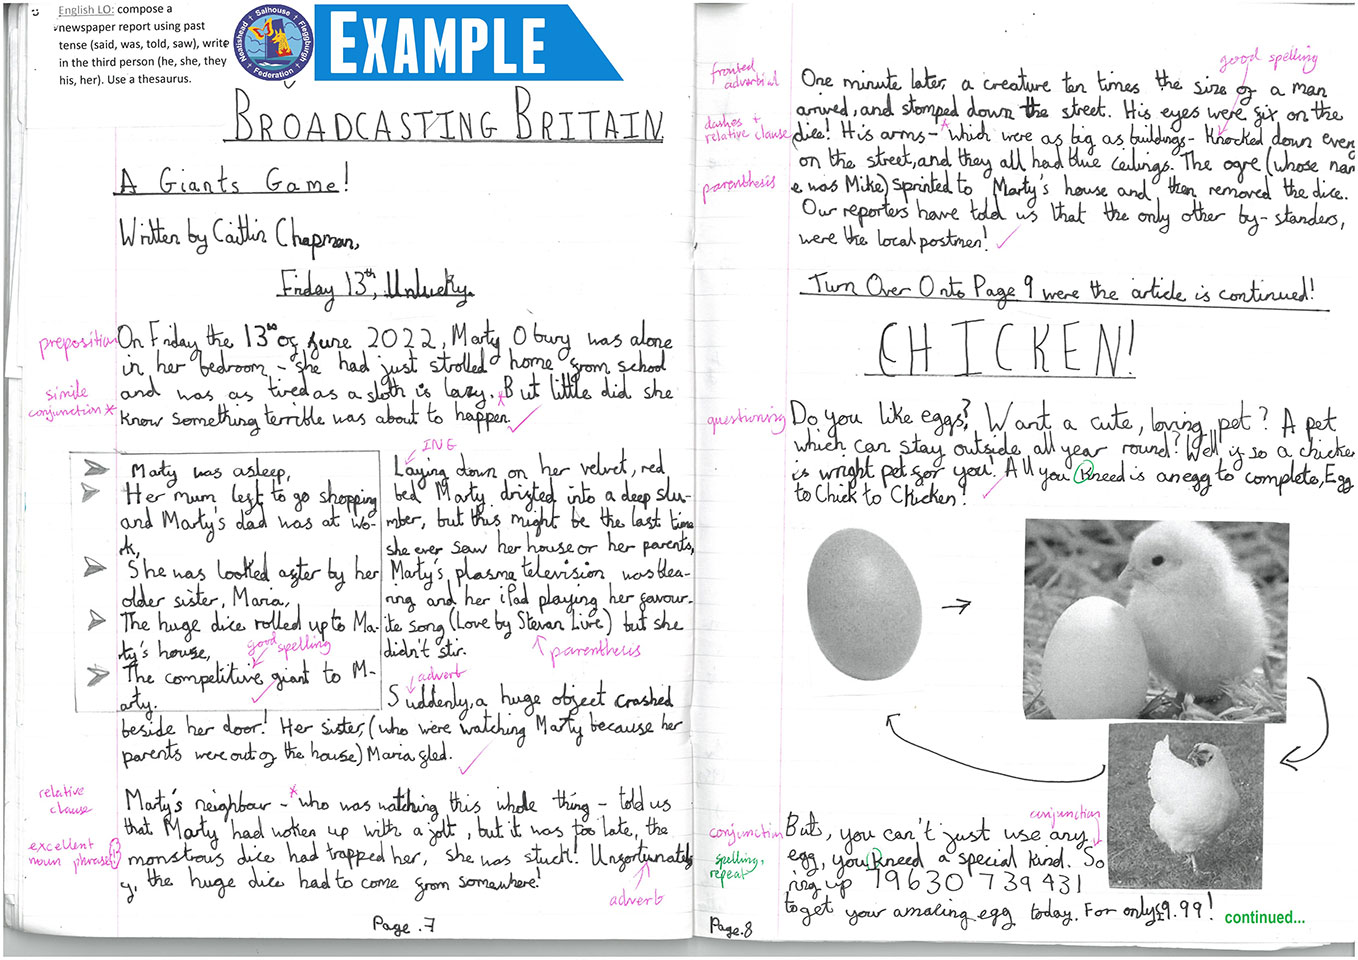 English LO: compose a
newspaper report using past
tense (said, was, told, saw), write
in the third person (he, she, they
his, her). Use a thesaurus.
Neatishead Salhouse Fleggburgh
Federation
EXAMPLE
BROADCASTING BRITAIN
A Giants Game!
Written by Caitlin Chapman,
Friday 13th, Unlucky.
preposition
On Friday the 13th of june 2022, Marty Obury was alone
in her bedroom - she had just strolled home from school
simile
and was as tired as a sloth is lazy. * But little did she
conjunction *
know something terrible was about to happen.
Marty was asleep,
Her mum left to go shopping
and Marty's dad was at wo-
rk,
She was looked after by her
older sister, Maria,
The huge dice rolled up to Ma-
rty's house,
good spelling
The competitive giant to M-
arty.
ING
Laying down on her velvet, red
bed Marty drifted into a deep slu-
mber, but this might be the last time
she ever saw her house or her parents,
Marty's plasma television was blea-
ring and her iPad playing her favour-
ite song (Love by Stevan Live) but she
didn't stir.
parenthesis
adverb
Suddenly, a huge object crashed
beside her door! Her sister, (who were watching Marty because her
parents were out of the house) Maria fled.
relative
clause
Marty's neighbour - * who was watching this whole thing - told us
that Marty had woken up with a jolt, but it was too late, the
excellent
noun phrase!
monstrous dice had trapped her, she was stuck! Unfortunatel
y, the huge dice had to come from somewhere!
adverb
Page .7
good spelling
fronted
adverbial
One minute later, a creature ten times the size of a man
arrived, and stomped down the street. His eyes were six on the
dashes +
relative clause
dice! His arms - * which were as big as buildings - Knocked down every
on the street, and they all had blue ceilings. The ogre (whose nam
parenthesis
e was Mike) sprinted to Marty's house and then removed the dice.
Our reporters have told us that the only other by-standers,
were the local postmen!
Turn Over Onto Page 9 were the article is continued!
CHICKEN!
questioning
Do you like eggs? Want a cute, loving pet? A pet
which can stay outside all year round? Well if so a chicken
is wright pet for you! All you kneed is an egg to complete, Egg
to Chick to Chicken!
conjunction
conjunction
But, you can't just use any
spelling,
repeat
egg, you kneed a special kind. So
ring up 79630 739 431
to get your amazing egg today. For only £9.99!
continued...
Page.8